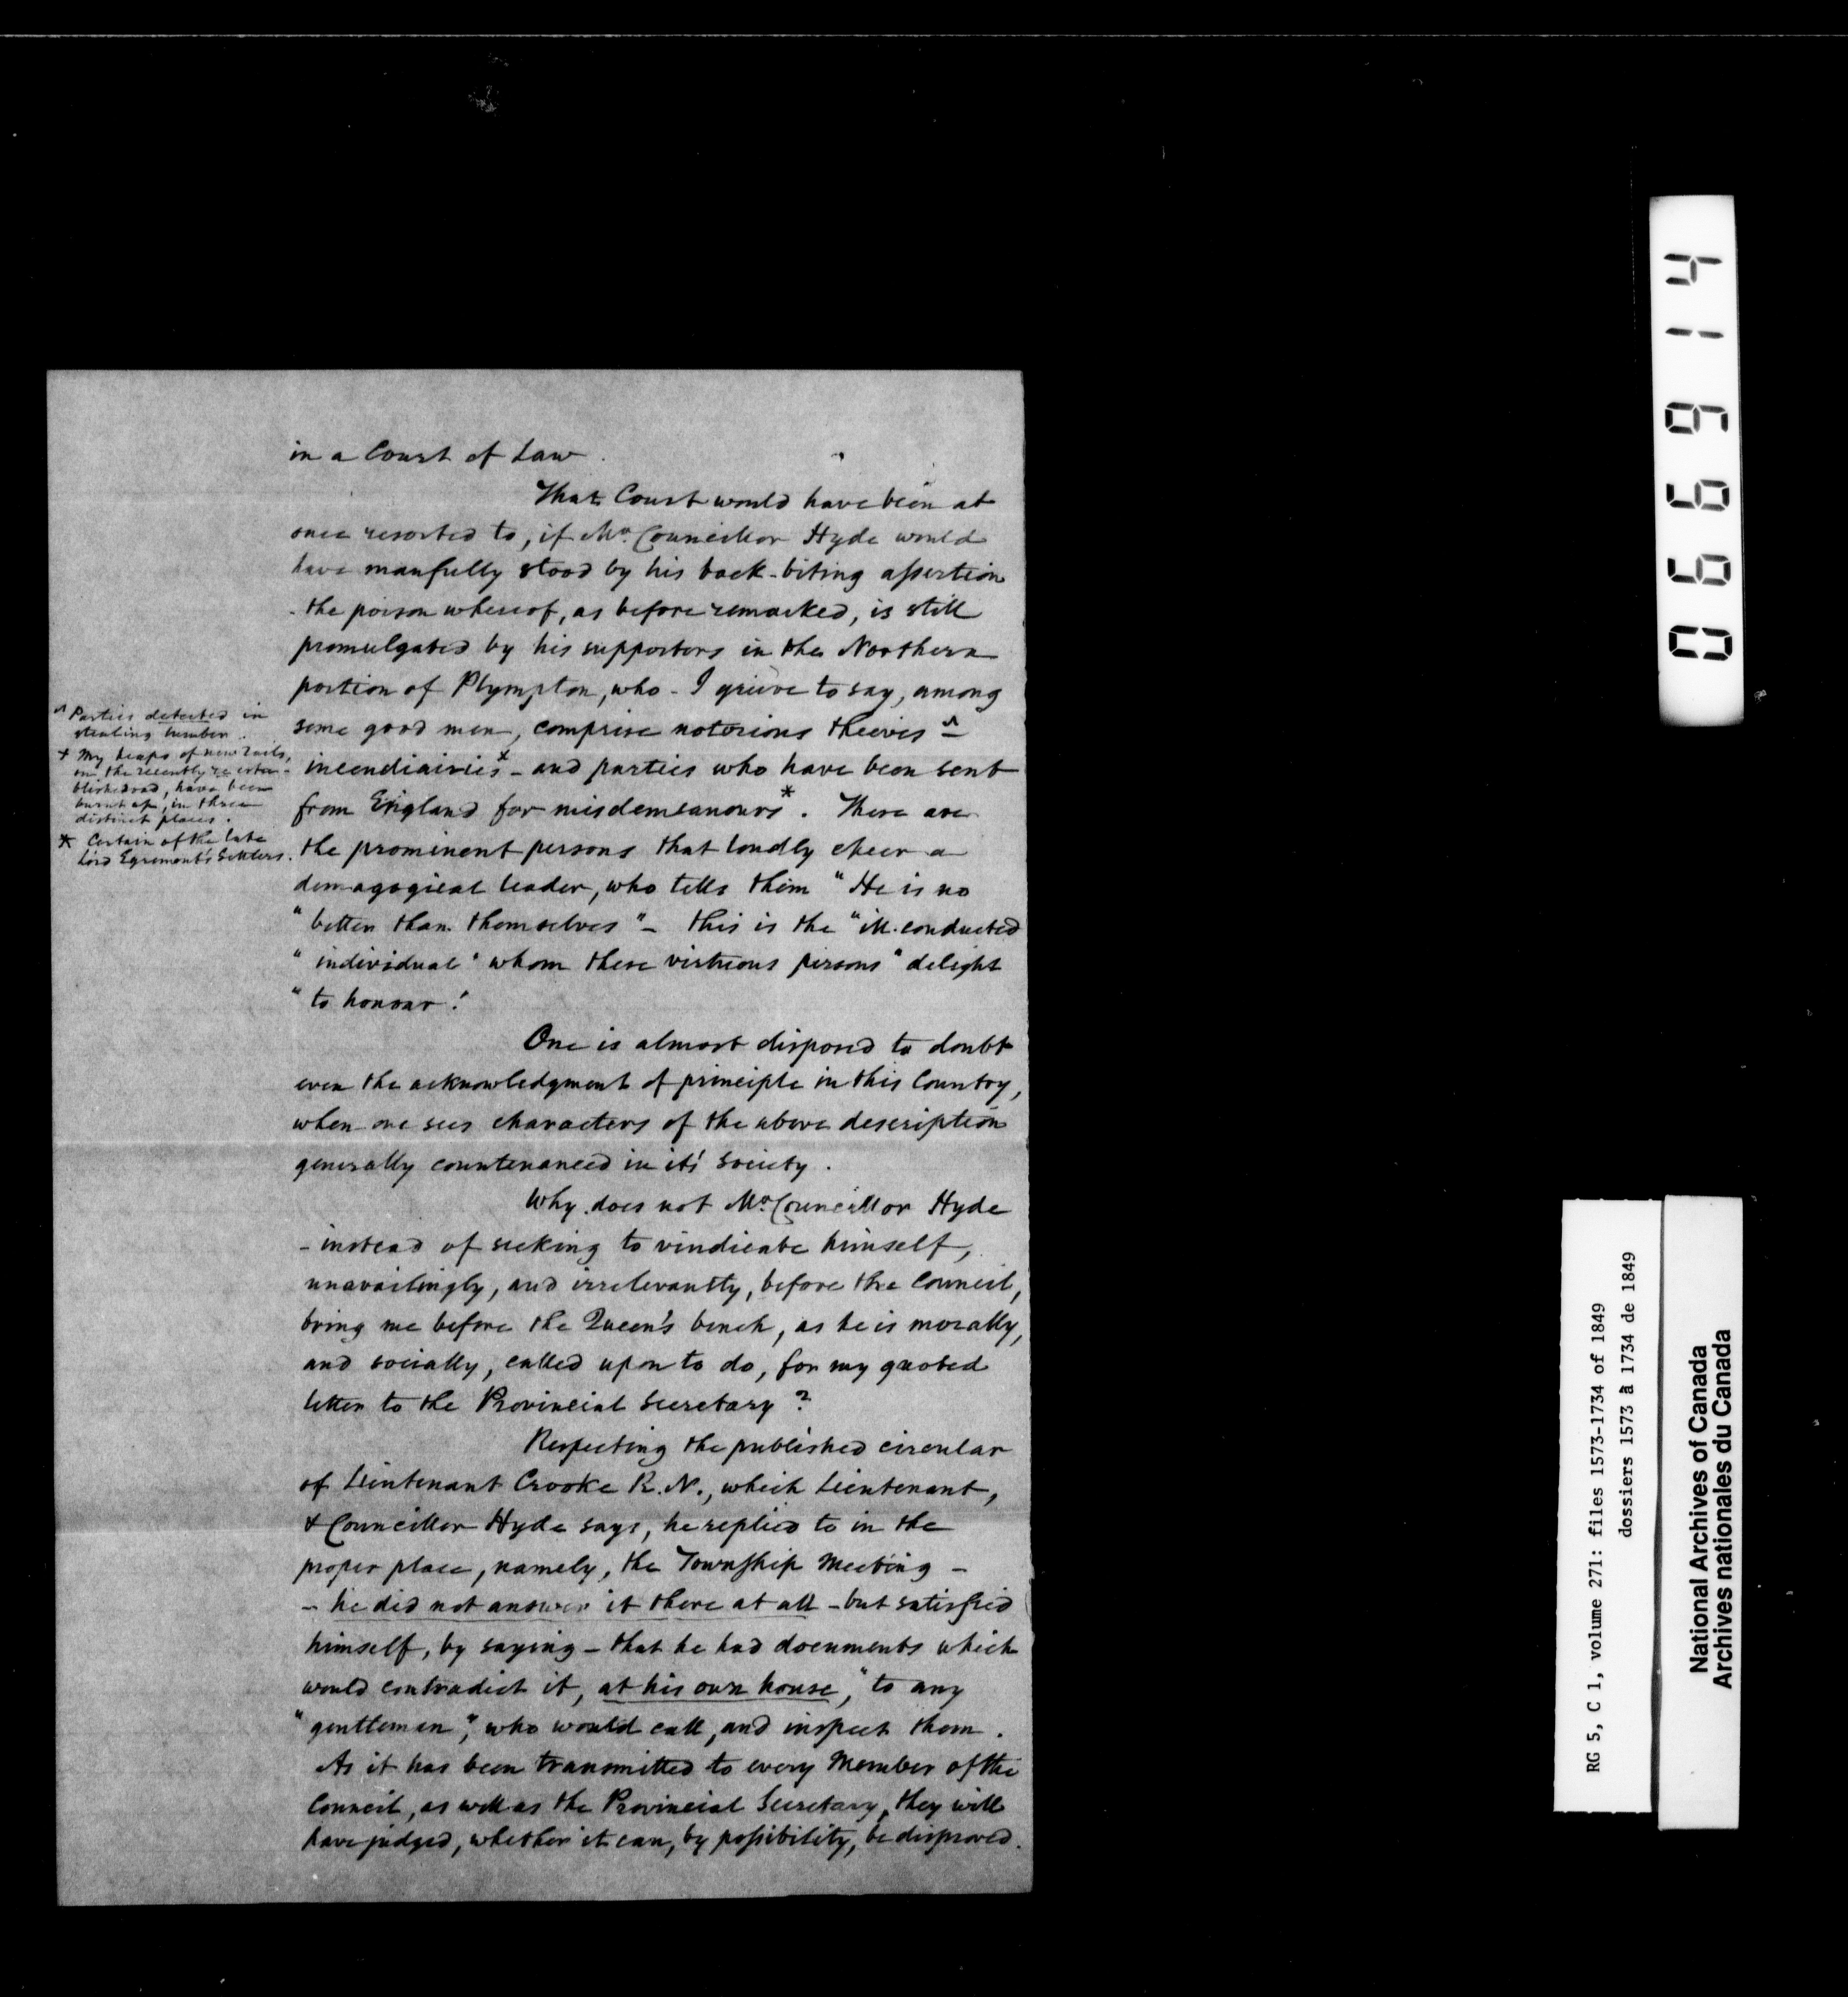 in a Court of Law.
That Court would have been at
once resorted to, if Mr. Councillor Hyde would
have manfully stood by his back-biting assertion
- the poison whereof, as before remarked, is still
promulgated by his supporters in the Northern
portion of Plympton, who - I grieve to say, among
some good men, comprise notorious theeves ^ -
incendiairies + - and parties who have been sent
from England for misdemeanours *. These are
the prominent persons that loudly cheer a
demagogical leader, who tells them "He is no
"better than themselves" - this is the "ill-conducted
"individual" whom these virtuous persons "delight
"to honour!
One is almost disposed to doubt
even the acknowledgment of principle in this Country,
when one sees characters of the above description
generally countenanced in it's society.
Why does not Mr. Councillor Hyde
- instead of seeking to vindicate himself,
unavailingly, and irrelevantly, before the Council,
bring me before the Queen's bench, as he is morally,
and socially, called upon to do, for my quoted
letter to the Provincial Secretary?
Respecting the published circular
of Lieutenant Crooke R.N., which Lieutenant,
& Councillor Hyde says, he replied to in the
proper place, namely, the Township Meeting -
- he did not answer it there at all - but satisfied
himself, by saying - that he had documents which
would contradict it, at his own house, "to any
"gentleman", who would call, and inspect them.
As it has been transmitted to every Member of the
Council, as well as the Provincial Secretary, they will
have judged, whether it can, by possibility, be disproved.
^ Parties detected in
stealing lumber.
+ My heaps of new rails,
on the recently re-esta-
blished road, have been
burnt up, in three
distinct places.
* Certain of the late
Lord Egremont's Settlers.
066914
RG 5, C 1, volume 271: files 1573-1734 of 1849
dossiers 1573 à 1734 de 1849
National Archives of Canada
Archives nationales du Canada